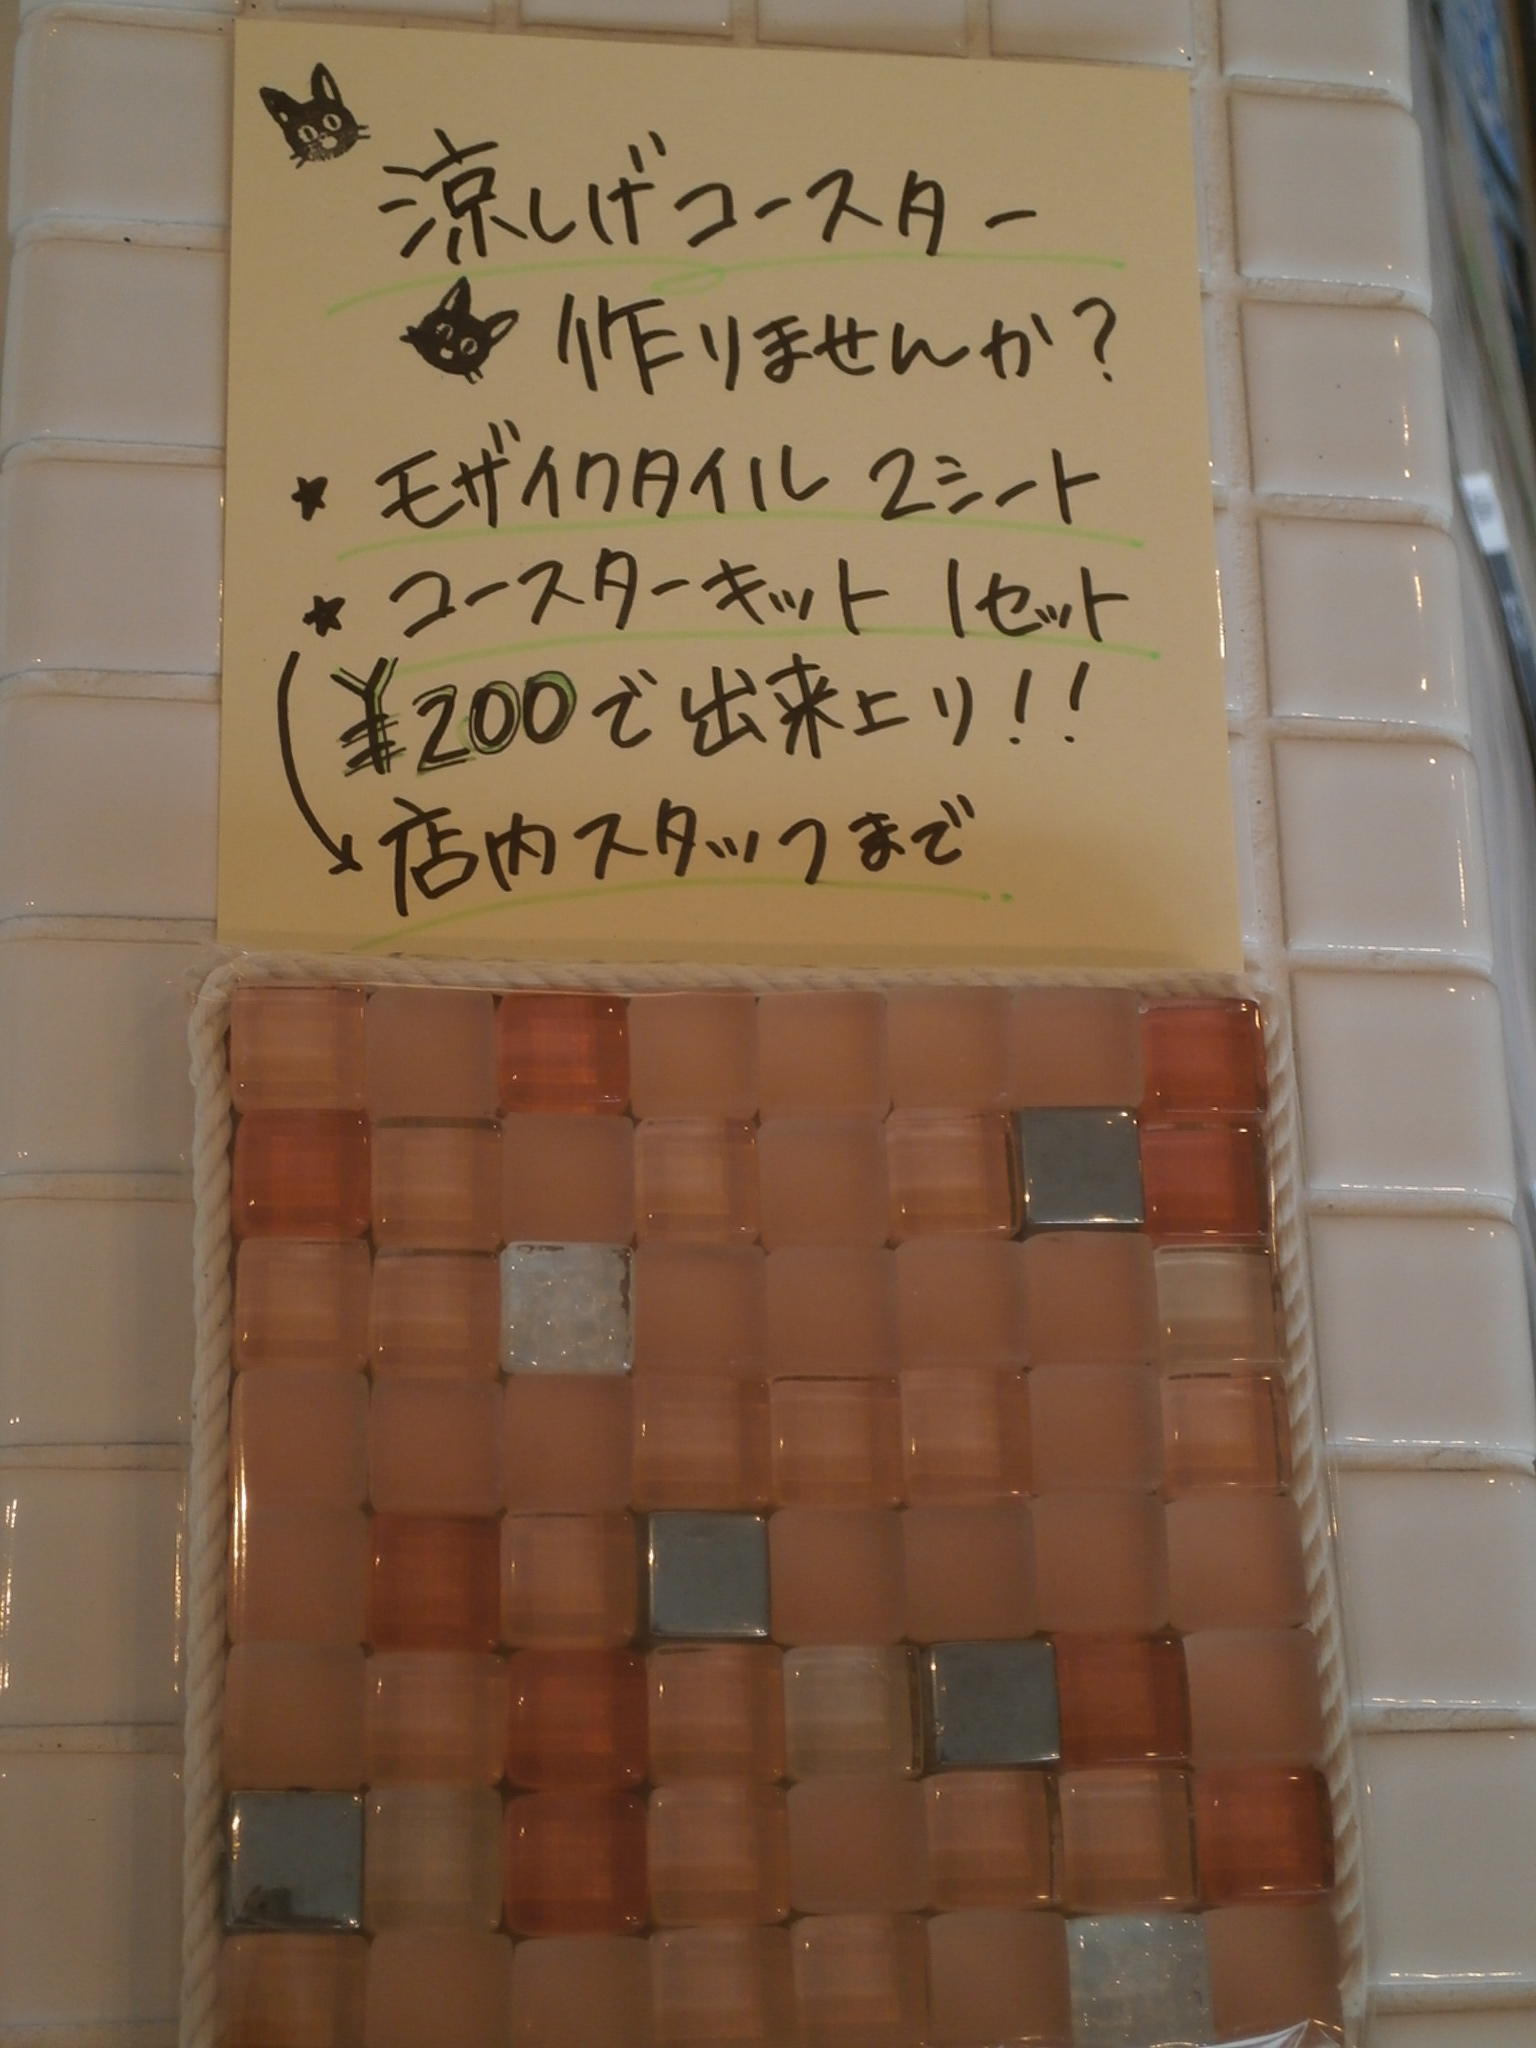 涼しげコースター
作りませんか?
★ モザイクタイル 2シート
★ コースターキット 1セット
¥200で出来上り!!
店内スタッフまで